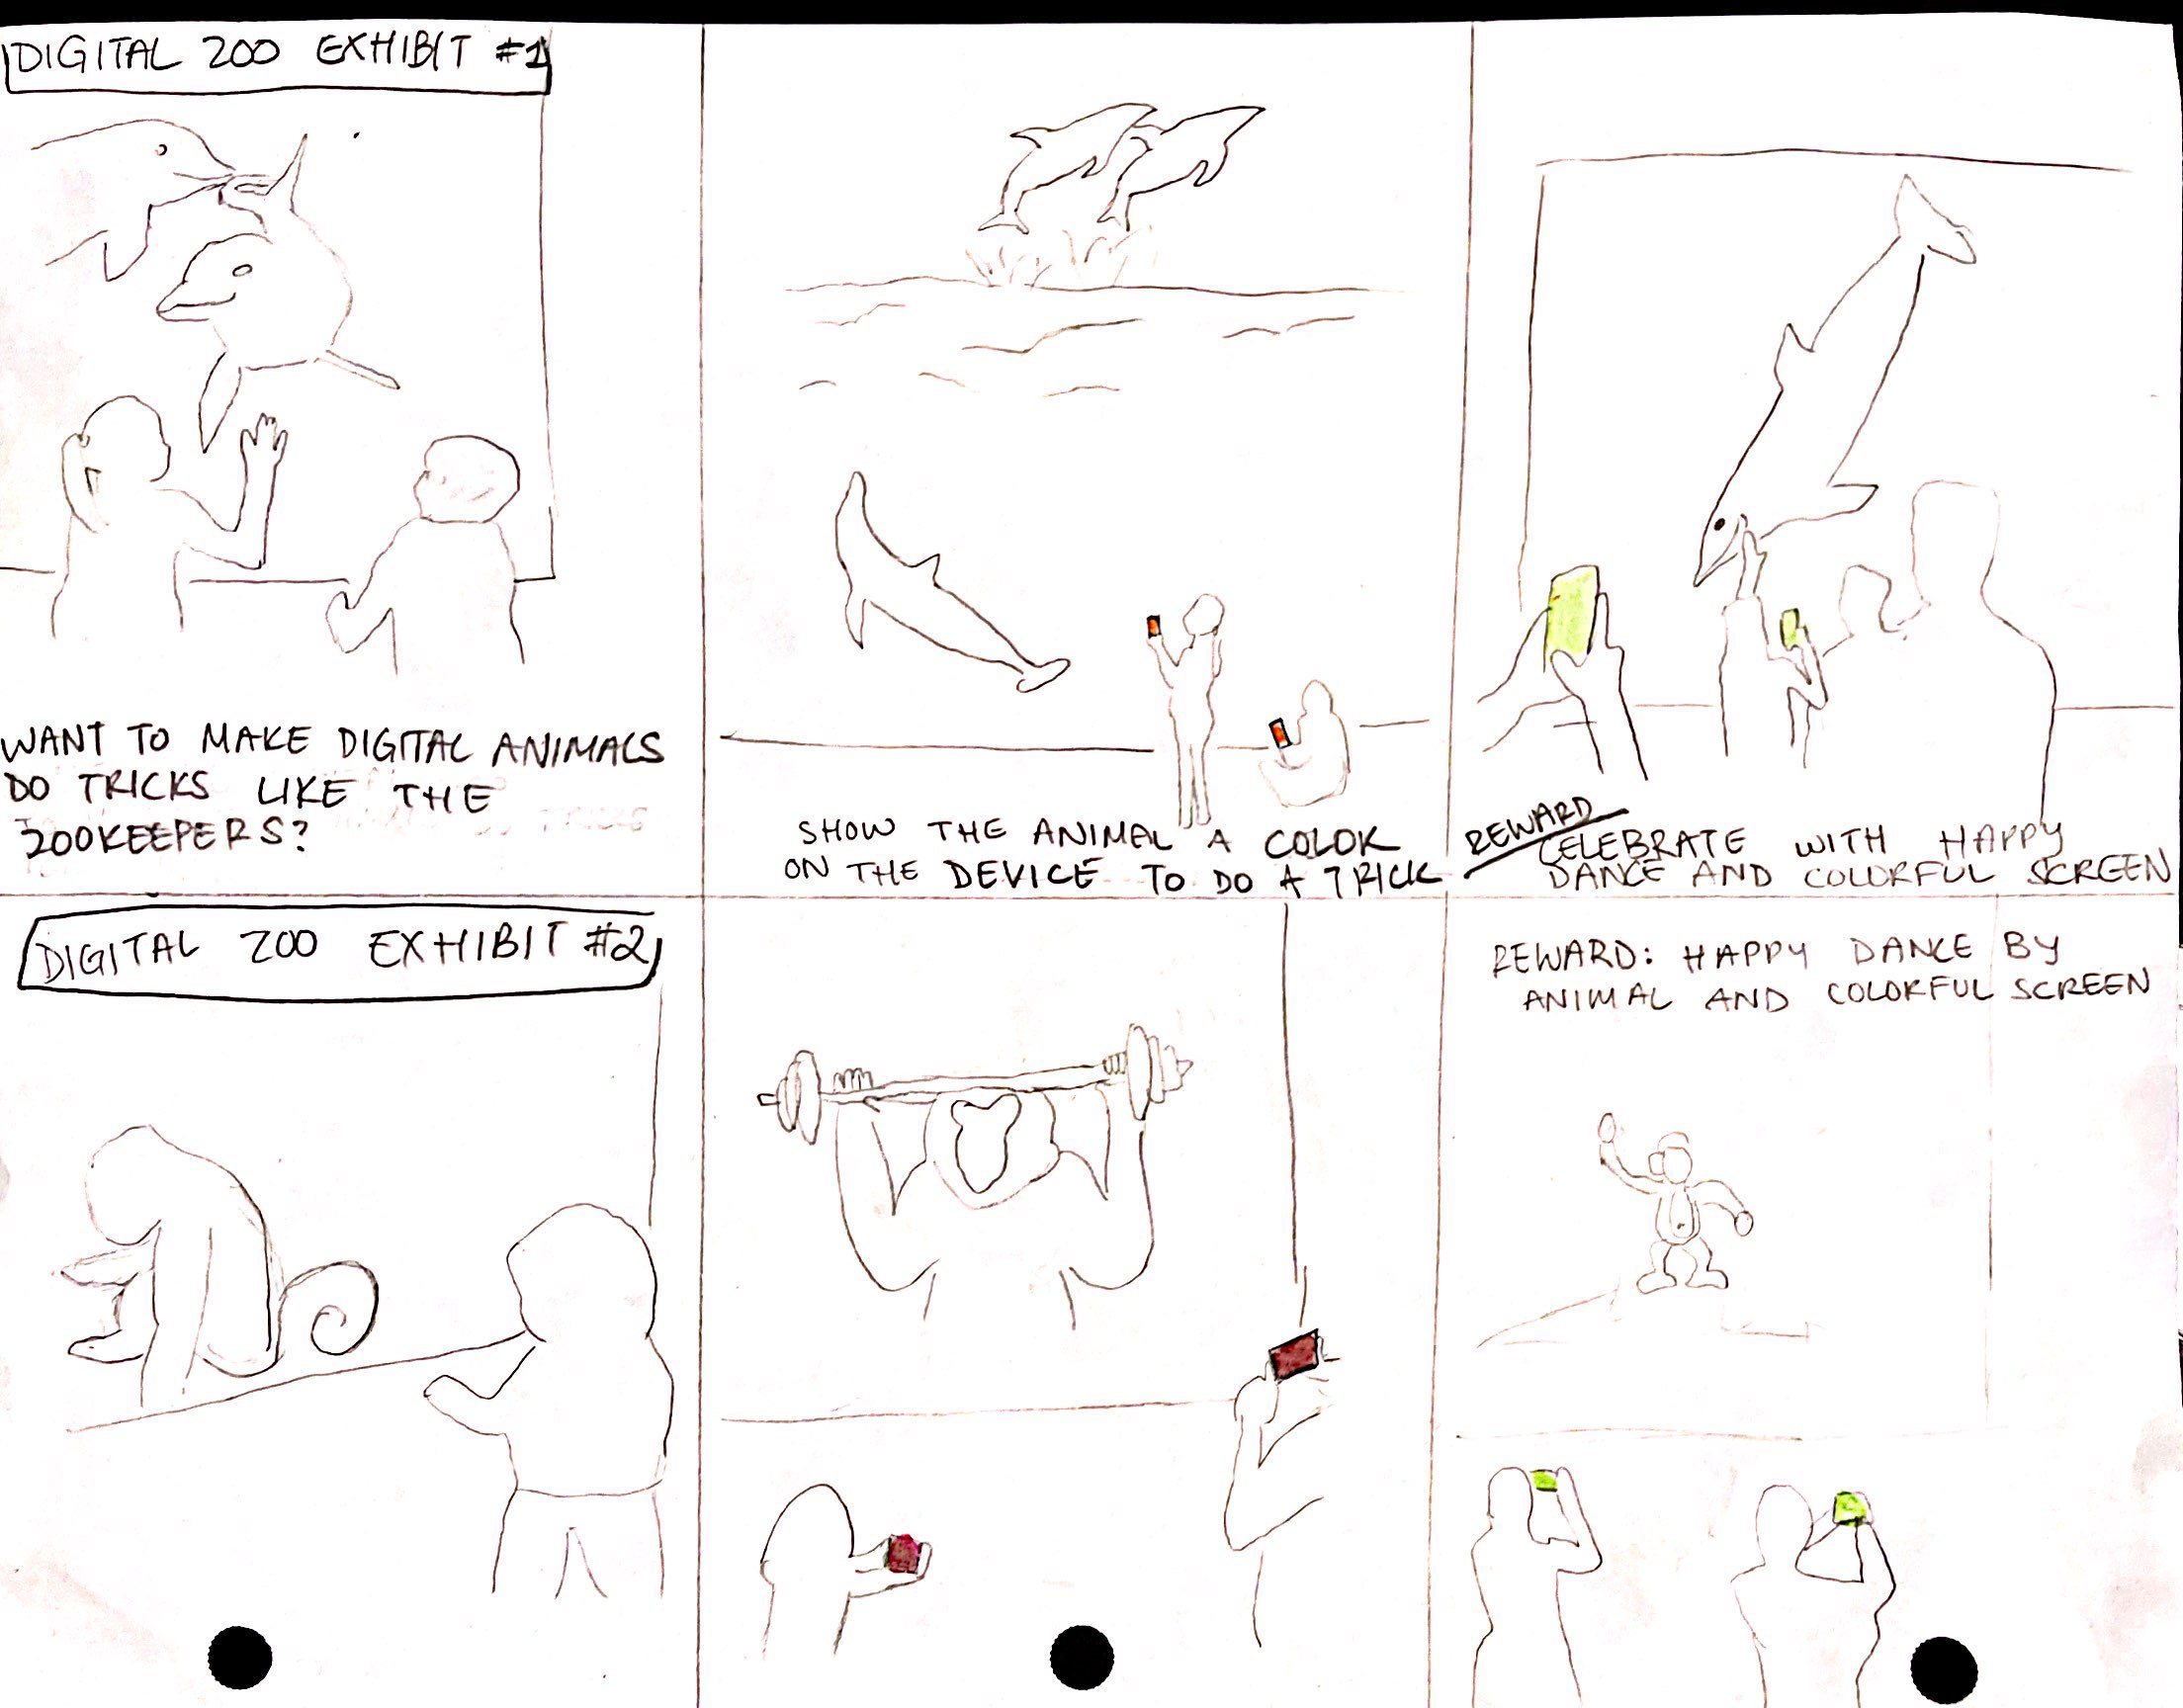 DIGITAL ZOO EXHIBIT #1
WANT TO MAKE DIGITAL ANIMALS
DO TRICKS LIKE THE
ZOOKEEPERS?
SHOW THE ANIMAL A COLOR
ON THE DEVICE TO DO A TRICK
REWARD
CELEBRATE WITH HAPPY
DANCE AND COLORFUL SCREEN
DIGITAL ZOO EXHIBIT #2
REWARD: HAPPY DANCE BY
ANIMAL AND COLORFUL SCREEN